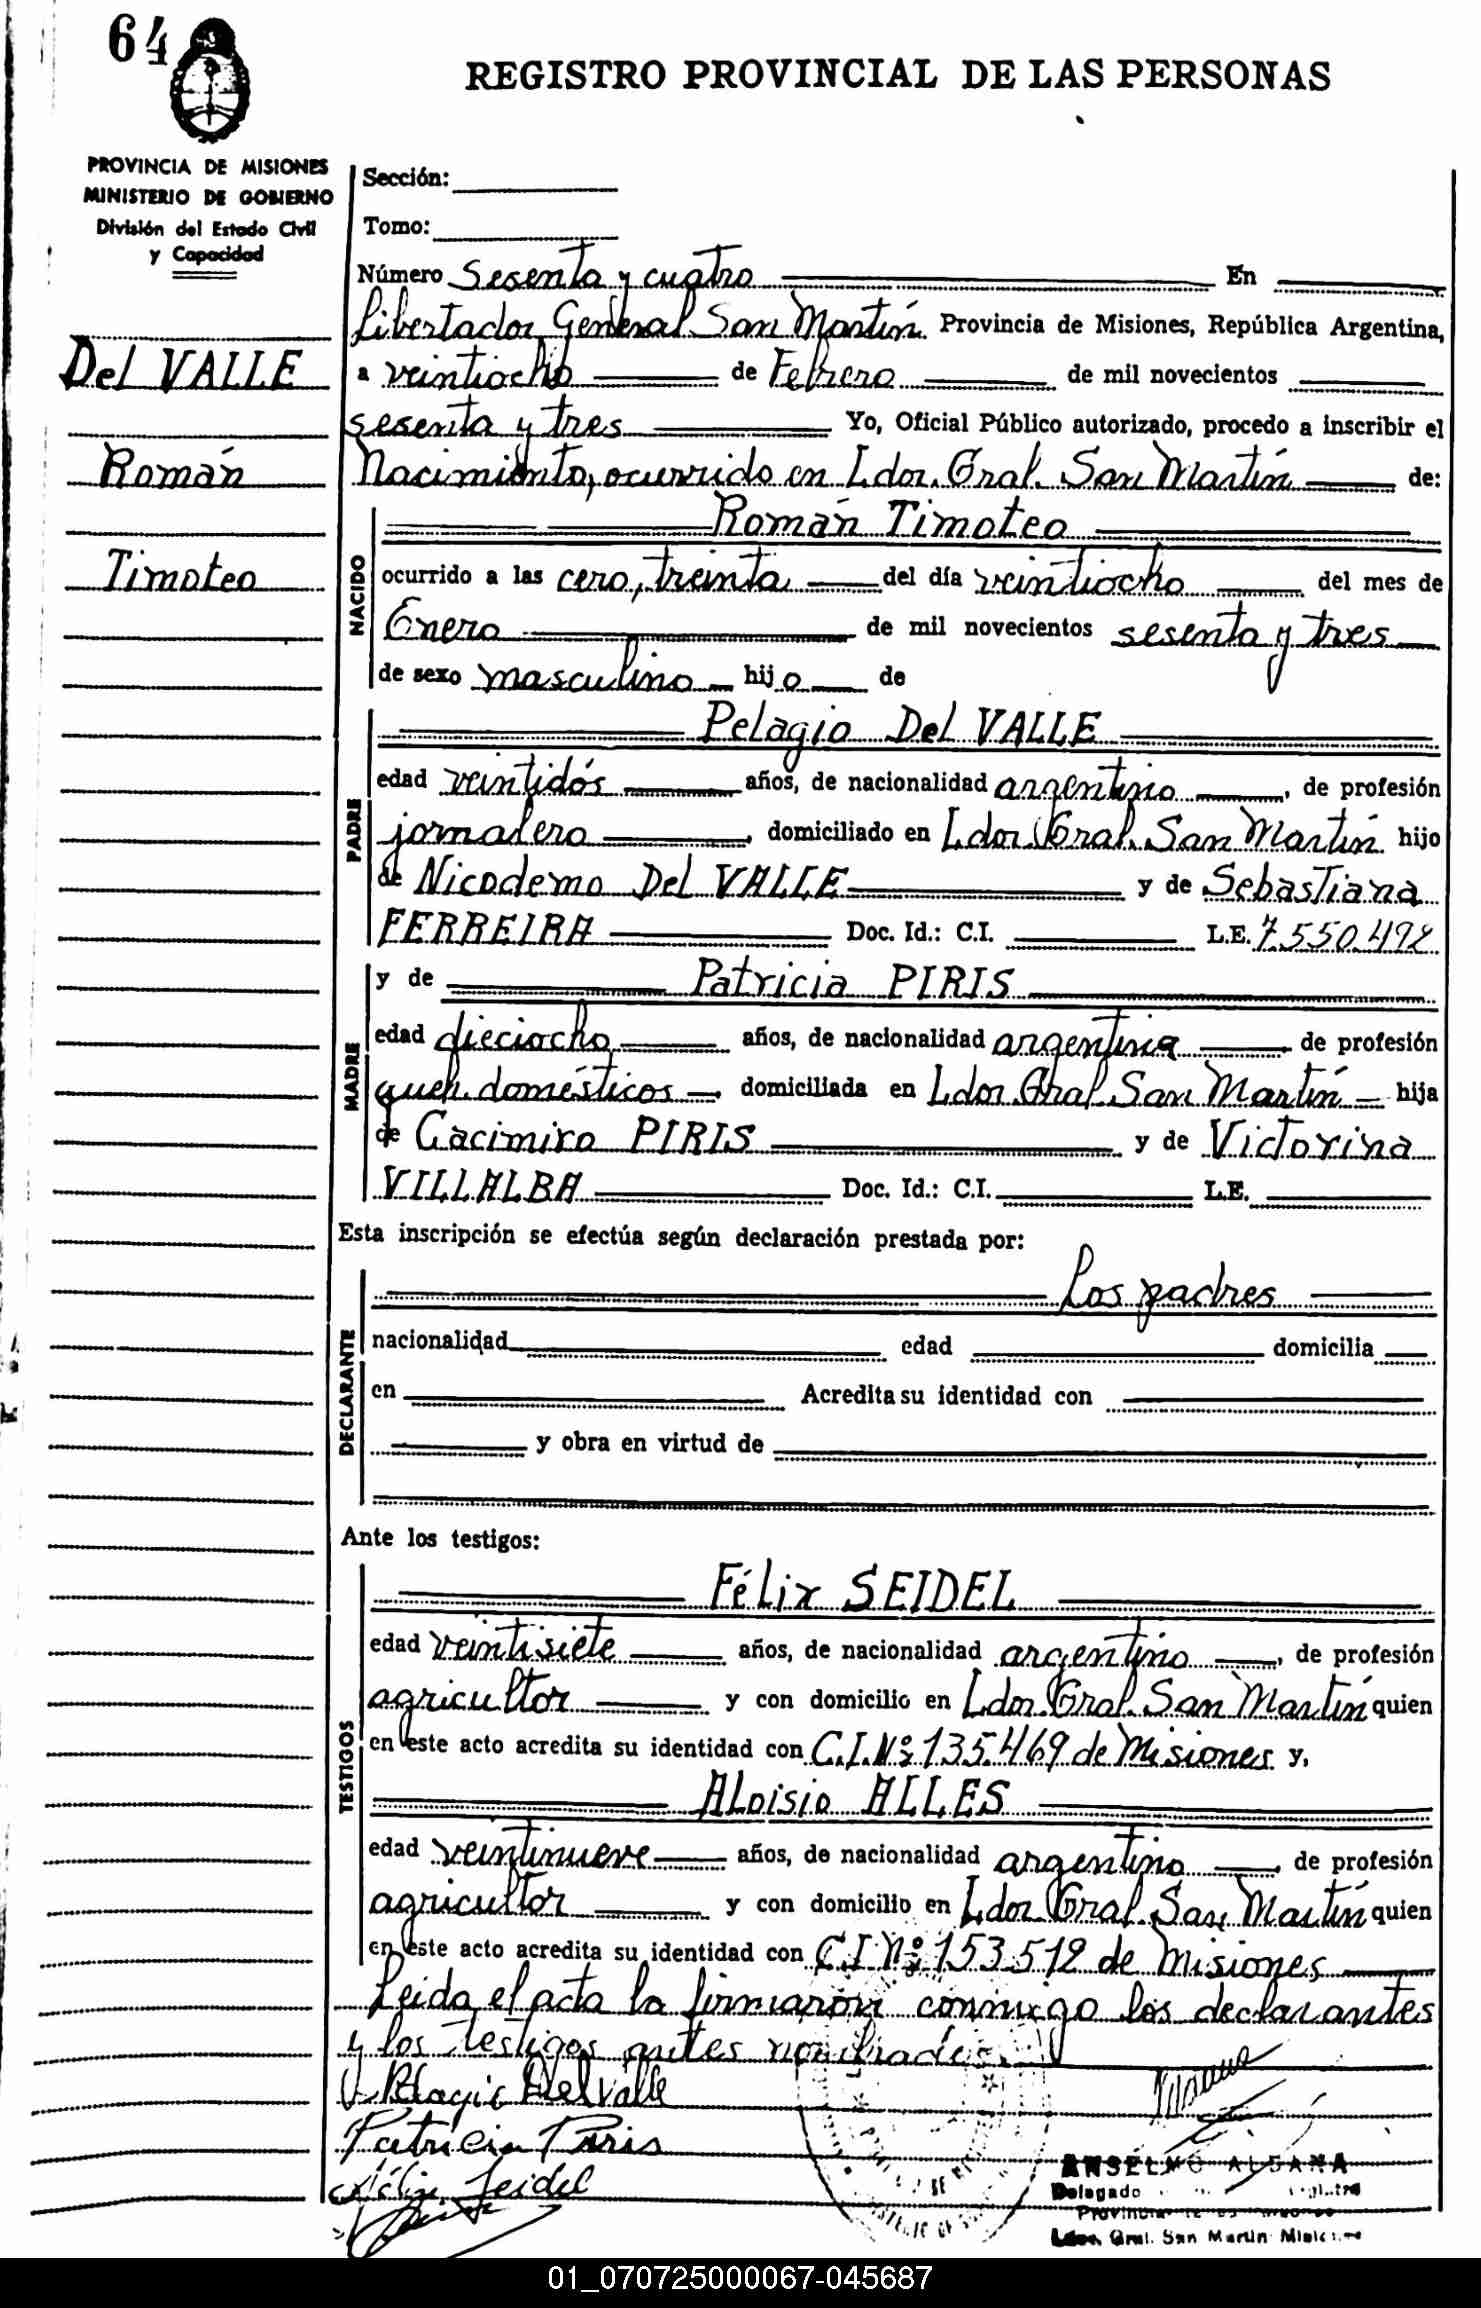 64
REGISTRO PROVINCIAL DE LAS PERSONAS
PROVINCIA DE MISIONES
MINISTERIO DE GOBIERNO
División del Estado Civil
y Capacidad
Del VALLE
Román
Timoteo
Sección:
Tomo:
Número Sesenta y cuatro En
Libertador General San Martín Provincia de Misiones, República Argentina,
a veintiocho de Febrero de mil novecientos
sesenta y tres Yo, Oficial Público autorizado, procedo a inscribir el
Nacimiento, ocurrido en Ldor. Gral. San Martín de:
NACIDO
Román Timoteo
ocurrido a las cero, treinta del día veintiocho del mes de
Enero de mil novecientos sesenta y tres
de sexo masculino hijo de
PADRE
Pelagio Del VALLE
edad veintidós años, de nacionalidad argentino, de profesión
jornalero, domiciliado en Ldor. Gral. San Martín hijo
de Nicodemo Del VALLE y de Sebastiana
FERREIRA Doc. Id.: C.I. L.E. 7.550.492
MADRE
y de Patricia PIRIS
edad dieciocho años, de nacionalidad argentina de profesión
queh. domésticos, domiciliada en Ldor. Gral. San Martín hija
de Cacimiro PIRIS y de Victorina
VILLALBA Doc. Id.: C.I. L.E.
Esta inscripción se efectúa según declaración prestada por:
DECLARANTE
Los padres
nacionalidad edad domicilia
en Acredita su identidad con
y obra en virtud de
Ante los testigos:
TESTIGOS
Félix SEIDEL
edad veintisiete años, de nacionalidad argentino, de profesión
agricultor y con domicilio en Ldor. Gral. San Martín quien
en este acto acredita su identidad con C.I. Nº 135.469 de Misiones y,
Aloisio ALLES
edad veintinueve años, de nacionalidad argentino, de profesión
agricultor y con domicilio en Ldor. Gral. San Martín quien
en este acto acredita su identidad con C.I. Nº 153.512 de Misiones
Leida el acta la firmaron conmigo los declarantes
y los testigos antes nombrados.
Pelagio Del Valle
Patricia Piris
Félix Seidel
ANSELMO ALDANA
Delegado
Provincial
Ldor. Gral. San Martín Misiones
01_070725000067-045687